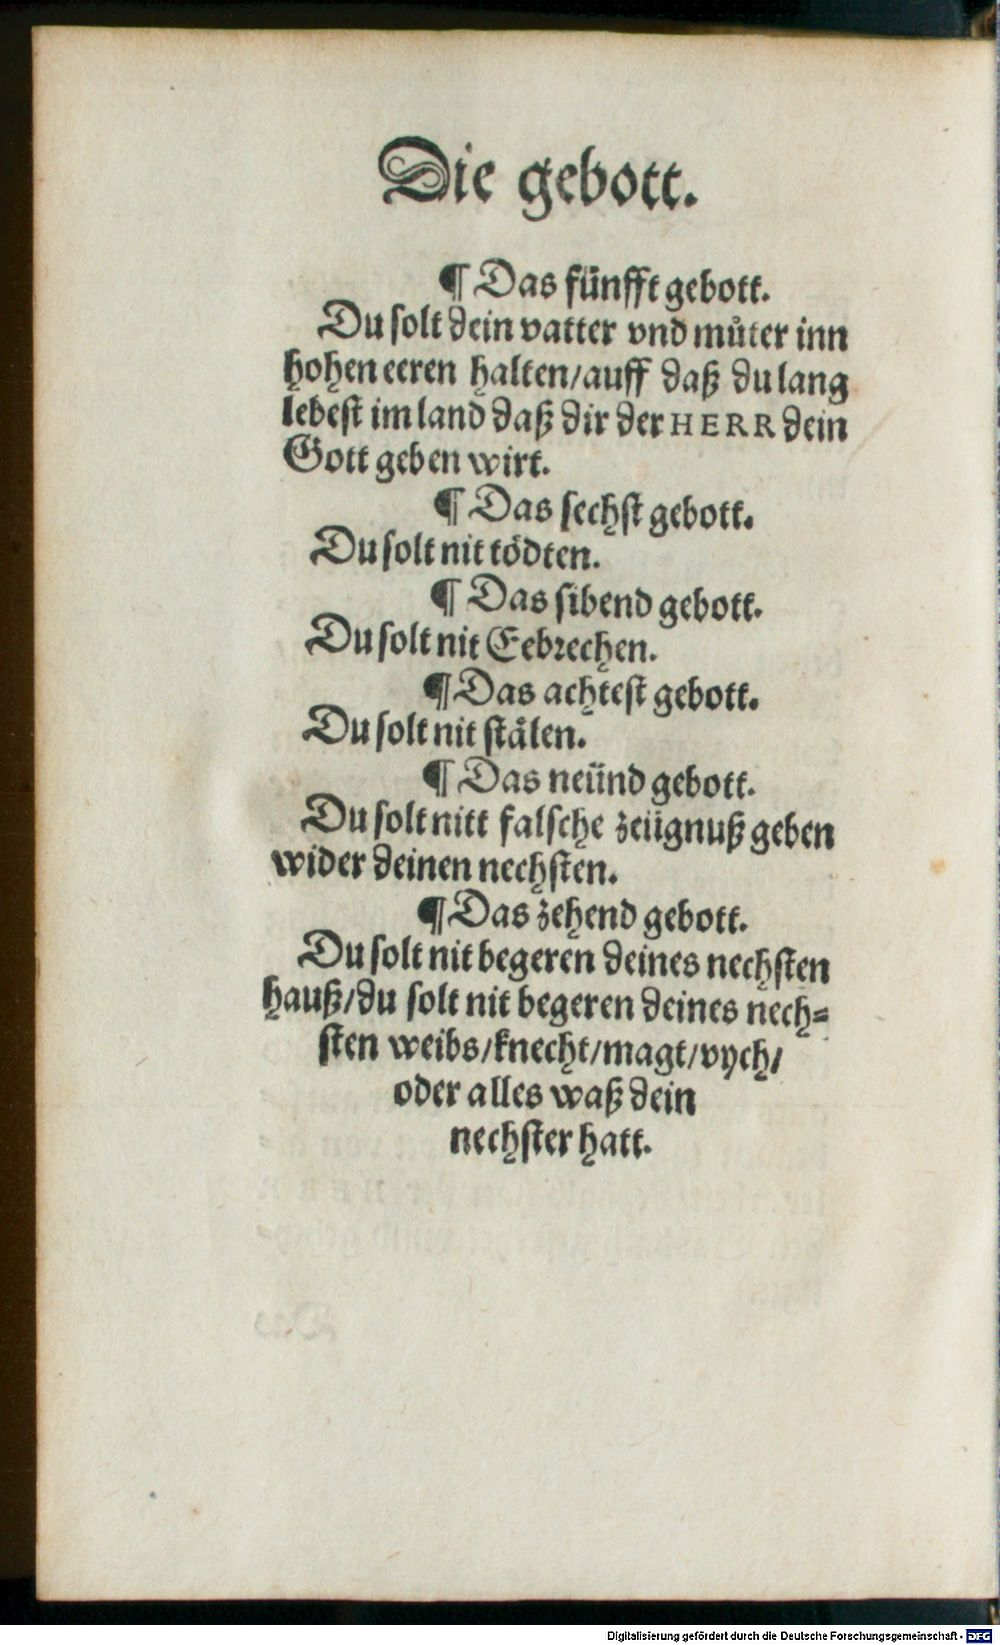 Die gebott.
¶ Das fünfft gebott.
Du solt dein vatter vnd můter inn
hohen eeren halten/auff daß du lang
lebest im land daß dir der HERR dein
Gott geben wirt.
¶ Das sechst gebott.
Du solt nit tödten.
¶ Das sibend gebott.
Du solt nit Eebrechen.
¶ Das achtest gebott.
Du solt nit stälen.
¶ Das neünd gebott.
Du solt nitt falsche zeügnuß geben
wider deinen nechsten.
¶ Das zehend gebott.
Du solt nit begeren deines nechsten
hauß/du solt nit begeren deines nech⸗
sten weibs/knecht/magt/vych/
oder alles waß dein
nechster hatt.
Digitalisierung gefördert durch die Deutsche Forschungsgemeinschaft - DFG